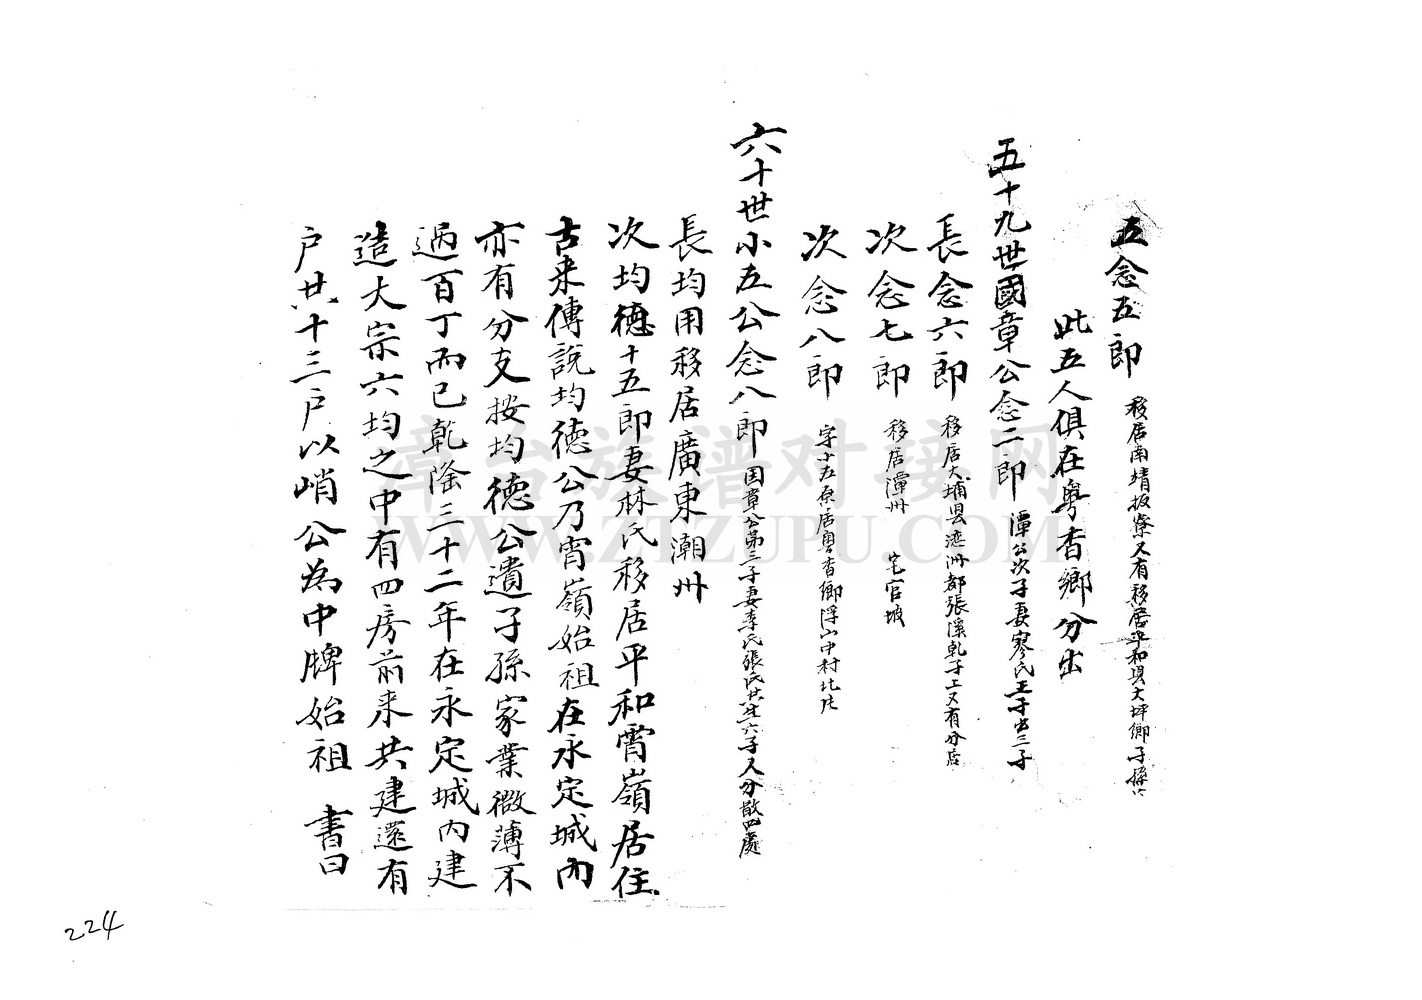 五念五郎 移居南靖板寮又有移居平和县大坪鄉子孫
此五人俱在粤杏鄉分出
五十九世國章公念二郎 潭公次子妻寥氏王子出三子
長念六郎 移居大埔县漉洲都張溪乾子上又有分居
次念七郎 移居潭州 宅官坡
次念八郎 字小五原居粤杏鄉浮山中村北片
六十世小五公念八郎 国章公第三子妻李氏張氏共生六子又分散四處
長均用移居廣東潮州
次均德十五郎妻林氏移居平和霄嶺居住
古来傳說均德公乃霄嶺始祖在永定城内
亦有分支按均德公遺子孫家業微薄不
過百丁而已乾隆三十二年在永定城内建
造大宗六均之中有四房前来共建還有
户共十三户以峭公為中牌始祖 書曰
224
章台族谱对接网
WWW.ZTZUPU.COM